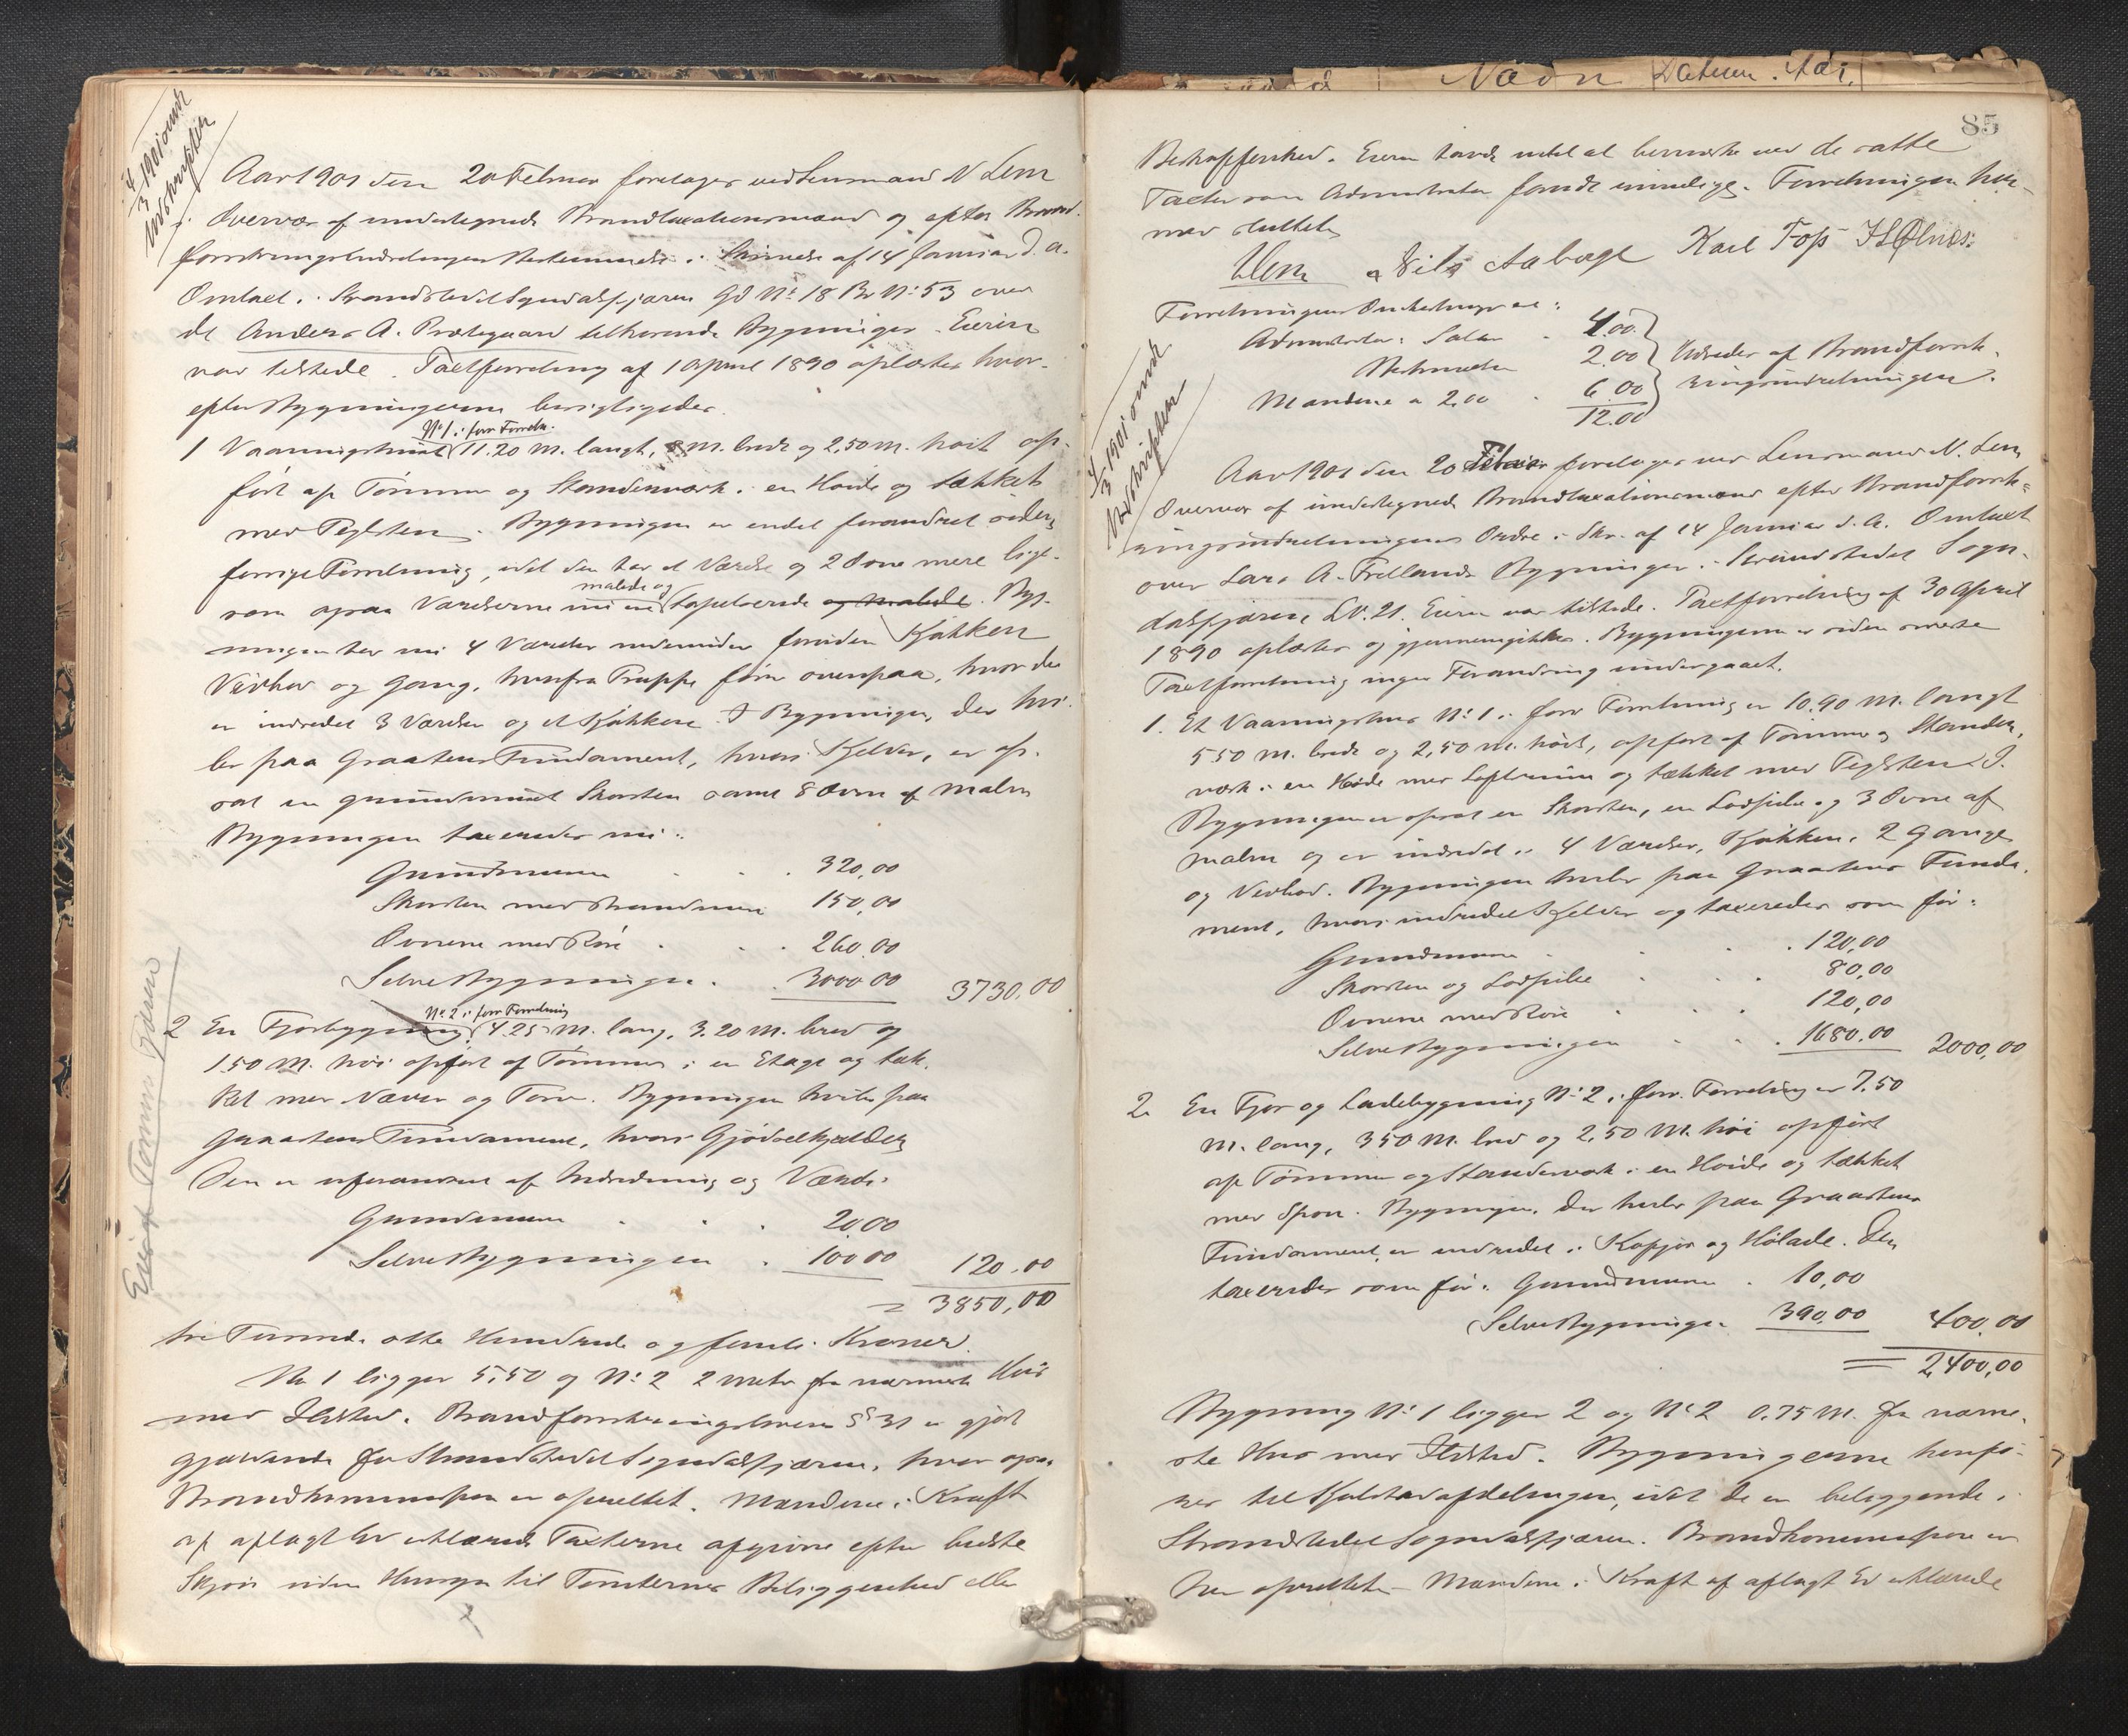 4/3 1901 ondt
Udskriften
Aar 1901 den 20 Februar foretoges ved Lensmand N Lem
i Overvær af undertegnede Brandtaxationsmænd og efter Brand-
forsikringsindretningens Bestemmelse i Skrivelse af 14 Januar d. A.
Omtaxt i Strandstedet Sogndalsfjæren Gd No 18 Br No 53 over
de Anders A. Prestegaard tilhørende Bygninger. Eieren
var tilstede. Taxtforretning af 1 April 1890 oplæstes hvor-
efter Bygningerne besigtigedes.
No 1 i forr Forretn.
1 Vaaningshuset 11.20 M. langt, 8 M. bredt og 2,50 M. høit op-
ført af Tømmer og Standerværk i en Høide og tækket
med Teglsten. Bygningen er endel forandret siden
forrige Forretning, idet den har et Værelse og 2 Ovne mere lige-
malede og
som ogsaa Værelserne nu er tapetserede og malede. Byg-
ningen har nu 4 Værelser nedenunder foruden Kjøkken
Vedhus og Gang, hvorfra Trappe fører ovenpaa, hvor der
er indredet 3 Værelser og et Kjøkken. I Bygningen, der hvi-
ler paa Graastens Fundament, hvori Kjelder, er op-
sat en grundmuret Skorsten samt 8 Ovne af Malm
Bygningen taxeredes nu:
Grundmuren . . . 320,00
Skorsten med Brandmur 150,00
Ovnene med Rør . . . 260,00
Selve Bygningen . . 3000.00 3730,00
No 2 i forr Forretning
2 En Fjøsbygning 4.25 M. lang, 3.20 M. bred og
150 M. høi opført af Tømmer i en Etage og tæk-
ket med Næver og Torv. Bygningen hviler paa
Graastens Fundament, hvori Gjødselkjælder
Den er uforandret af Indredning og Værdi:
Grundmuren . . . 20,00
Selve Bygningen . 100 00 120,00
= 3850,00
tre Tusinde otte Hundrede og femti Kroner.
No 1 ligger 5,50 og No 2 2 Meter fra nærmeste Hus
med Ildsted. Brandforsikringslovens § 31 er gjort
gjældende for Strandstedet Sogndalsfjæren, hvor ogsaa
Brandkommission er oprettet. Mændene i Kraft
af aflagt Ed erklærede Taxterne afgivne efter bedste
Skjøn uden Hensyn til Tomternes Beliggenhed eller
Tomm Fjæren
85
Navn Datum. Aar.
Beskaffenhed. Eieren havde intet at bemærke ved de satte
Taxter som Administrator fandt rimelige. Forretningen her-
med sluttet
NLem Nils Aaberge Karl Foss
Forretningens Omkostninger er:
Administrator: Salær . 4.00
2.00 Udredes af Brandforsik-
ringsindretningen.
Mændene a 2.00 . 6.00
12.00
4/3 1901 ondt
Udskriften
Aar 1901 den 20 Februar foretoges ved Lensmand N. Lem
i Overvær af undertegnede Brandtaxationsmænd efter Brandforsik-
ringsindretningens Ordre i Skr. af 14 Januar d. A. Omtaxt
over Lars A. Frellands Bygninger i Strandstedet Sogn-
dalsfjæren, LN. 21. Eieren var tilstede. Taxtforretning af 30 April
1890 oplæstes og gjennemgikkes. Bygningerne er siden omrørte
Taxtforretning ingen Forandring undergaaet.
1. Et Vaaningshus No 1 i forr Forretning er 10.90 M. langt
5 50 M. bredt og 2,50 M. høit, opført af Tømmer og Stander-
værk i en Høide med Loftsrum og tækket med Teglsten. I
Bygningen er opsat en Skorsten, en Lodpibe og 3 Ovne af
Malm og er indredet i 4 Værelser, Kjøkken, 2 Gange
og Vedhus. Bygningen hviler paa Graastens Funda-
ment, hvori indredet Kjelder og taxeredes som før:
Grundmuren . . . 120,00
Skorsten og Lodpibe . . . 80,00
Ovnene med Rør . . . 120,00
Selve Bygningen . . . 1680.00 2000,00
2. En Fjøs og Ladebygning No 2 i forr. Forretning er 7.50
M. lang, 350 M. bred og 2,50 M. høi opført
af Tømmer og Standerværk i en Høide og tækket
med Spon. Bygningen, der hviler paa Graastens
Fundament, er indredet i Kofjøs og Høilade. Den
taxeredes som før: Grundmuren . 10,00
Selve Bygningen 390,00 400,00
= 2,400,00
Bygning No 1 ligger 2 og No 2 0.75 M. fra nærme-
ste Hus med Ildsted. Bygningerne henfø-
rer til Kjøbstadafdelingen, idet de er beliggende i
Strandstedet Sogndalsfjæren. Brandkommission er
her oprettet. Mændene i Kraft af aflagt Ed erklærede